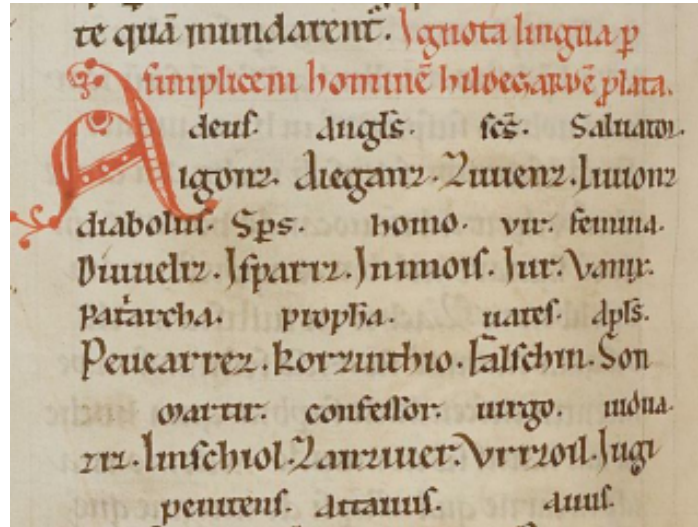 te quā mundarent᷑. Ignota lingua p
simplicem hominē hildegardē plata.
deus angl̄s. sc̄s. Saluator.
Aigonz. dieganz. Zuuenz. Liuionz
diabolus. Sp̄s. homo. vir. femina.
Diuueliz. Isparriz. Inimois. Iur. Vanix.
Pat̄archa. propħa. uates. Apl̄s.
Peuearrez. korzinthio. falschin. Son
martir. confessor. uirgo. uidua.
ziz. linschiol. Zanziuer. Vrrzoil. Iugi
penitens. attauus. auus.